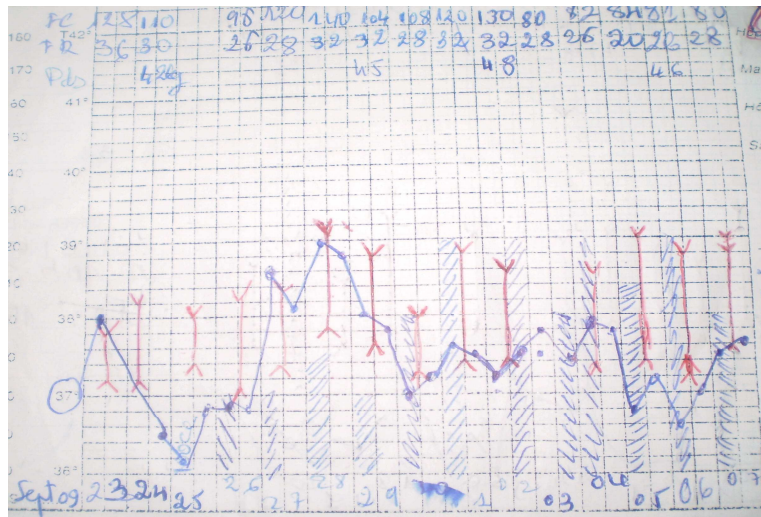 FC 128 110 96 120 140 104 108 120 130 80 82 84 82 80
180 T42° FR 36 30 26 28 32 32 28 32 32 28 26 20 26 28
170 Pds 42kg 45 48 46 Ma
60 41°
50
40 40°
30
20 39°
10
38°
37°
36°
Sept 09 23 24 25 26 27 28 29 1 02 03 04 05 06 07